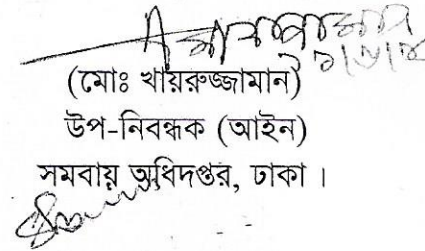 (মোঃ খায়রুজ্জামান)
উপ-নিবন্ধক (আইন)
সমবায় অধিদপ্তর, ঢাকা।